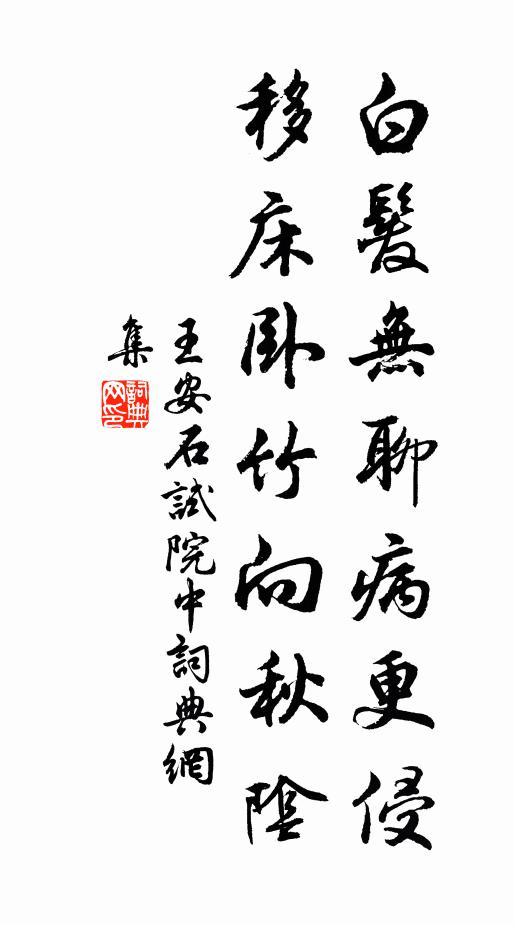 白髮無聊病更侵
移床臥竹向秋陰
王安石試院中詞典網
集
詞典網印